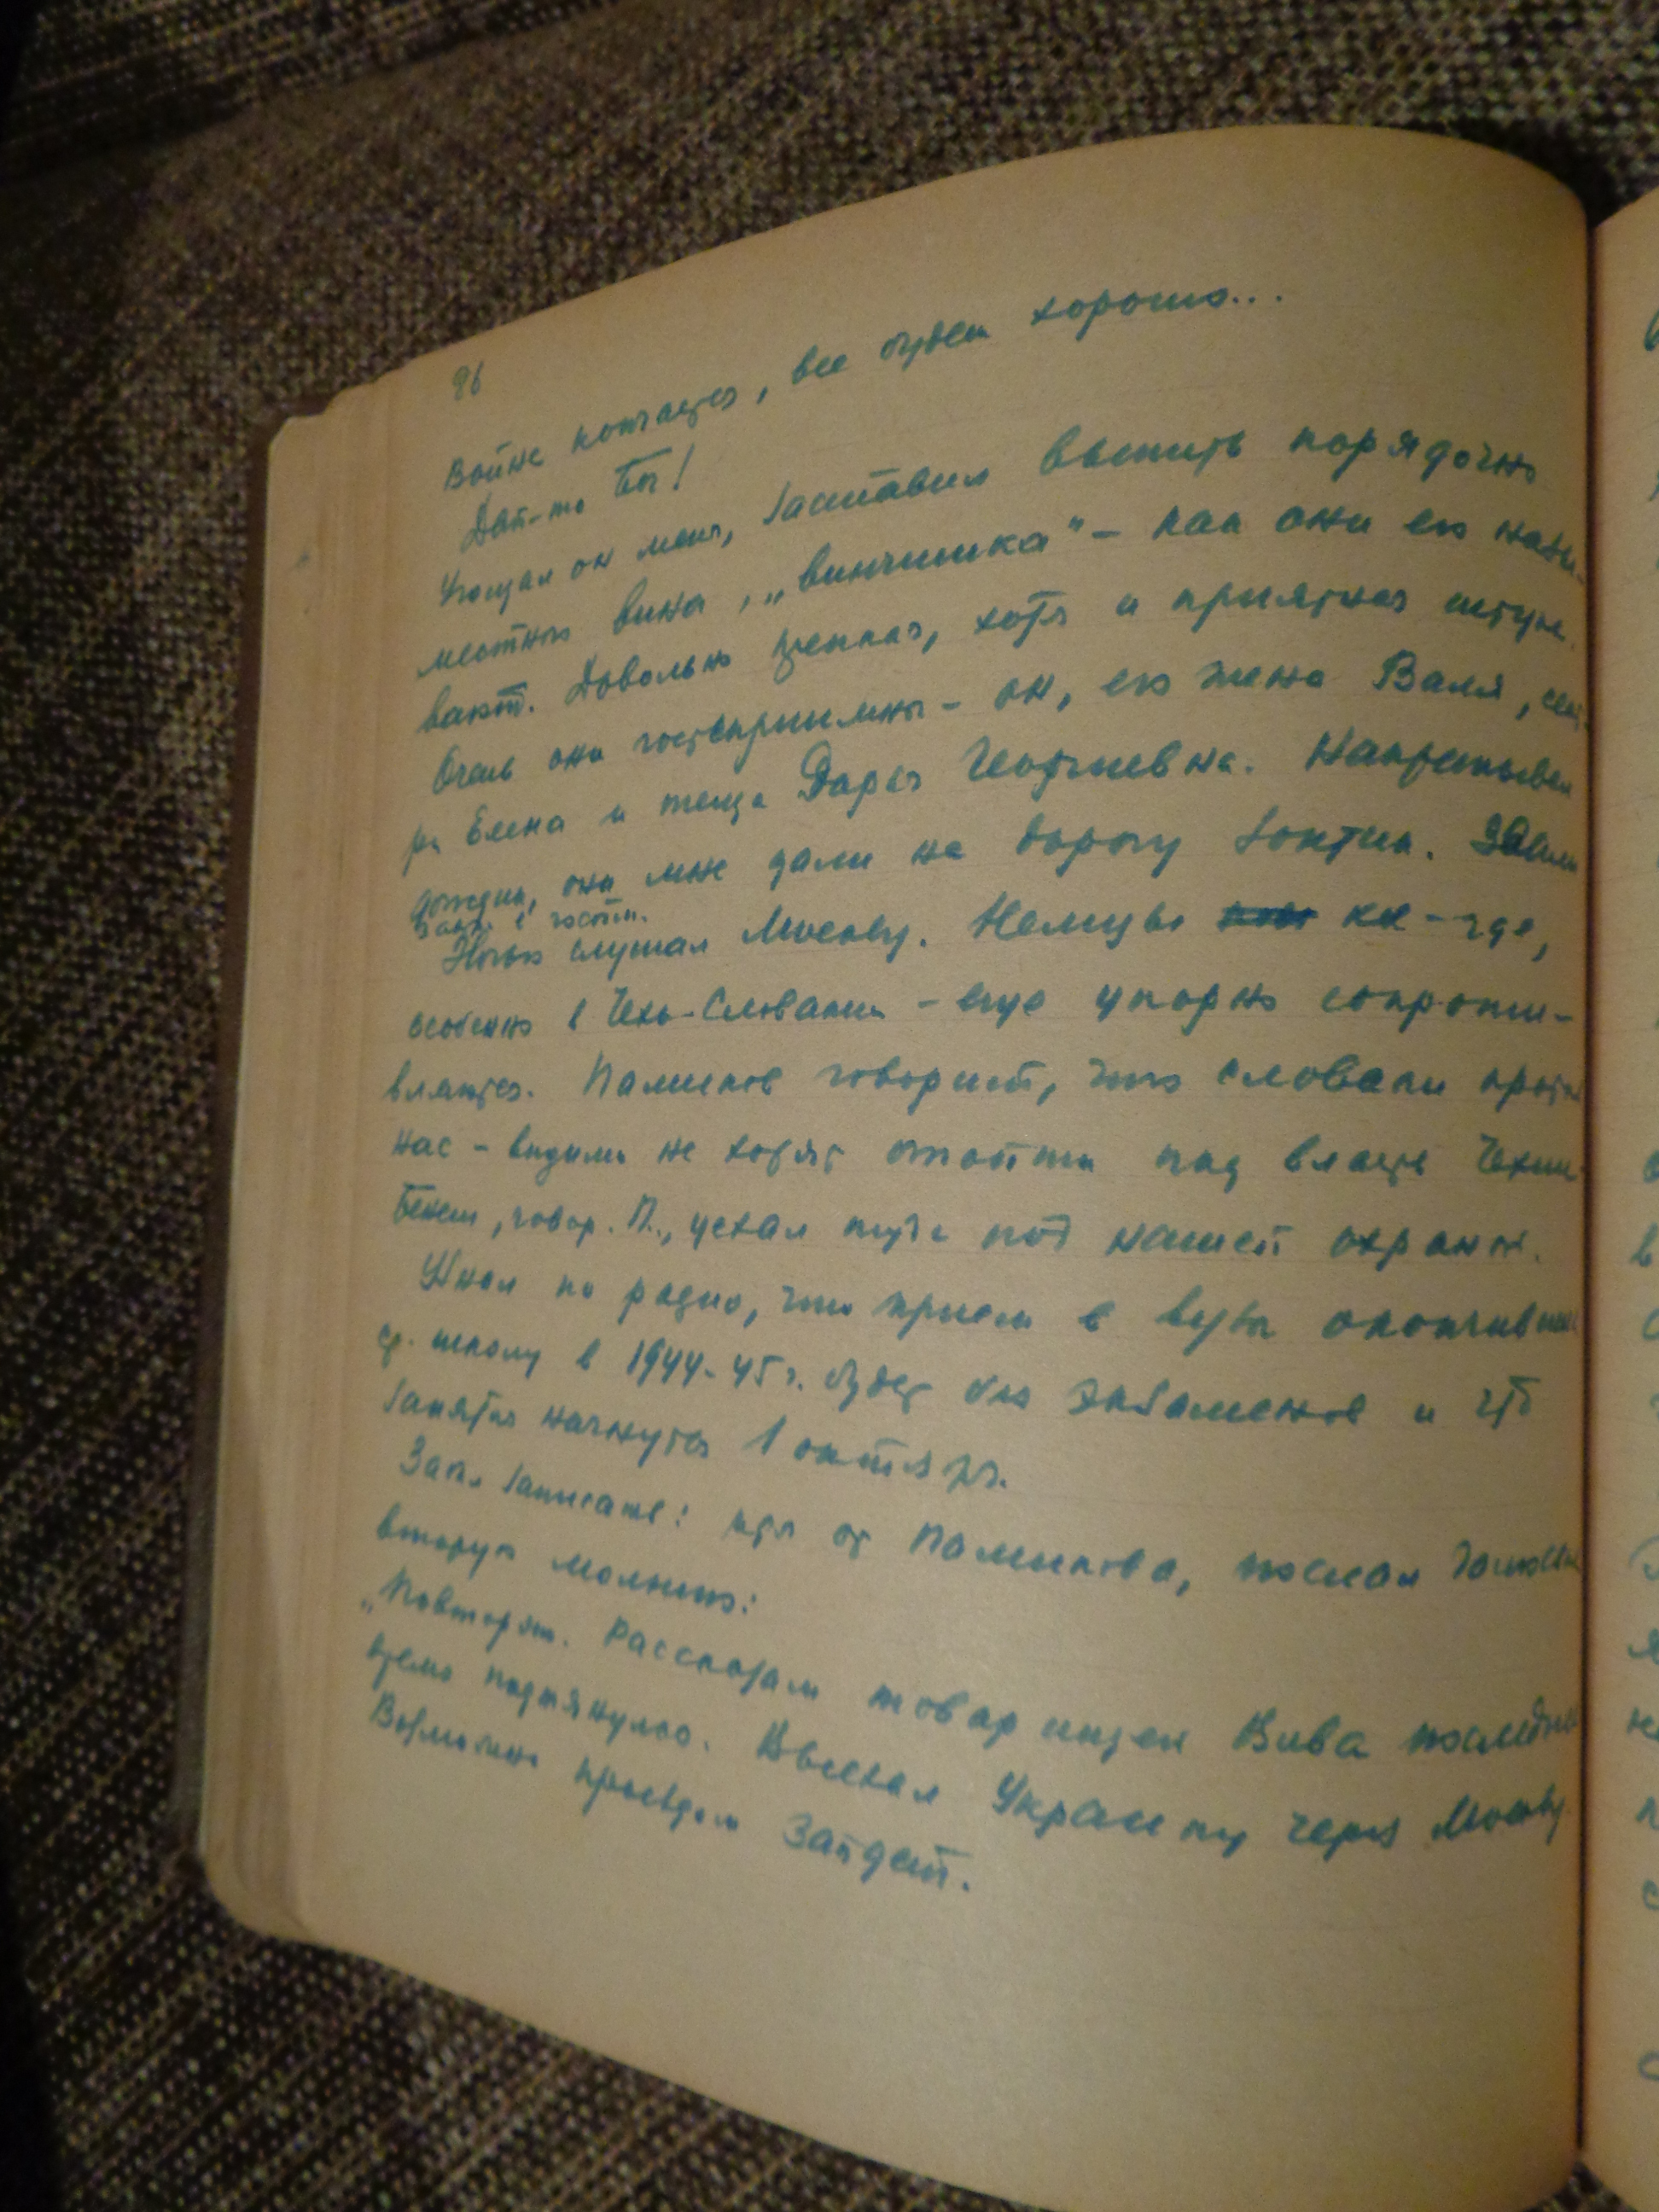 96
Война кончается, все будет хорошо...
Дай-то Бог!
Угощал он меня, заставил выпить порядочно
местного вина, „винчишка" – как они его назы-
вают. Довольно крепкая, хотя и приятная штука.
Очень они гостеприимны – он, его жена Валя, сест-
ра Елена и теща Дарья Георгиевна. Накрапывал
дождик, они мне дали на дорогу зонтик. Звали
в гости.
Ночью слушал Москву. Немцы кое-где,
особенно в Чехо-Словакии – еще упорно сопроти-
вляются. Памиков говорит, что словаки против
нас – видимо не хотят отойти под власть Чехии.
Бенеш, говор. П., уехал туда под нашей охраной.
Узнал по радио, что прием в вузы окончивших
ср. школу в 1944-45 г. будет без экзаменов и что
занятия начнутся 1 октября.
Забыл записать: идя от Памикова, послал Галюське
вторую молнию:
„Повторяю. Рассказам товарищей Вива последнее
время подтянулось. Выехал Украину через Москву.
Возможно проездом Зайдет.